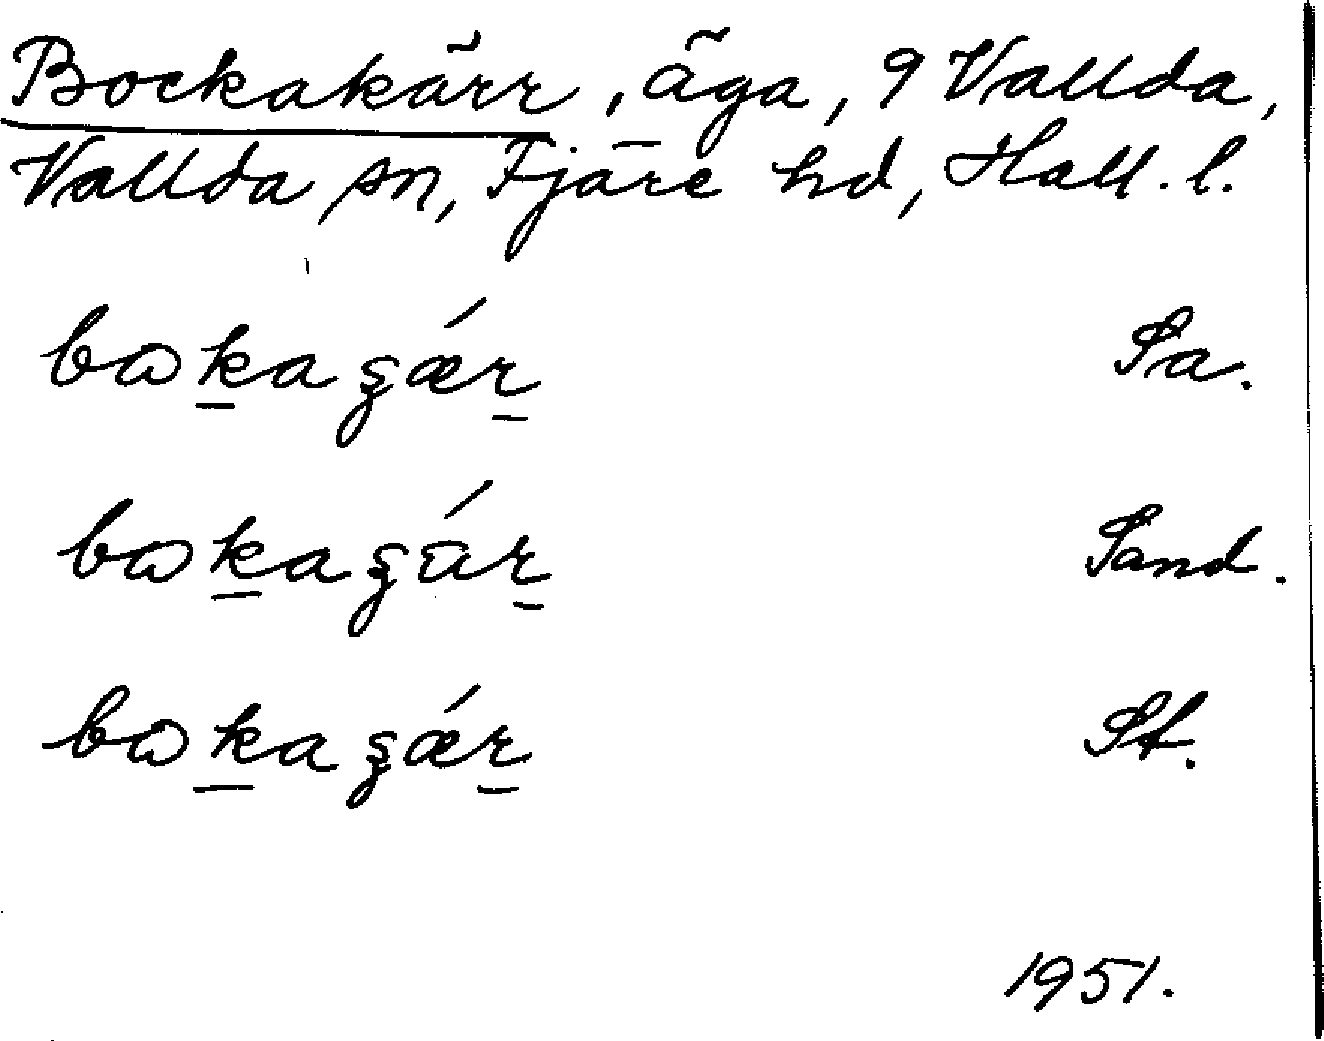 Bockakärr, äga, 9 Vallda,
Vallda sn, Fjäre hd, Hall. l.
bωḵaʓǽṟ Sa.
bωḵaʓá̈ṟ Sand.
bωḵaʓǽṟ St.
1951.